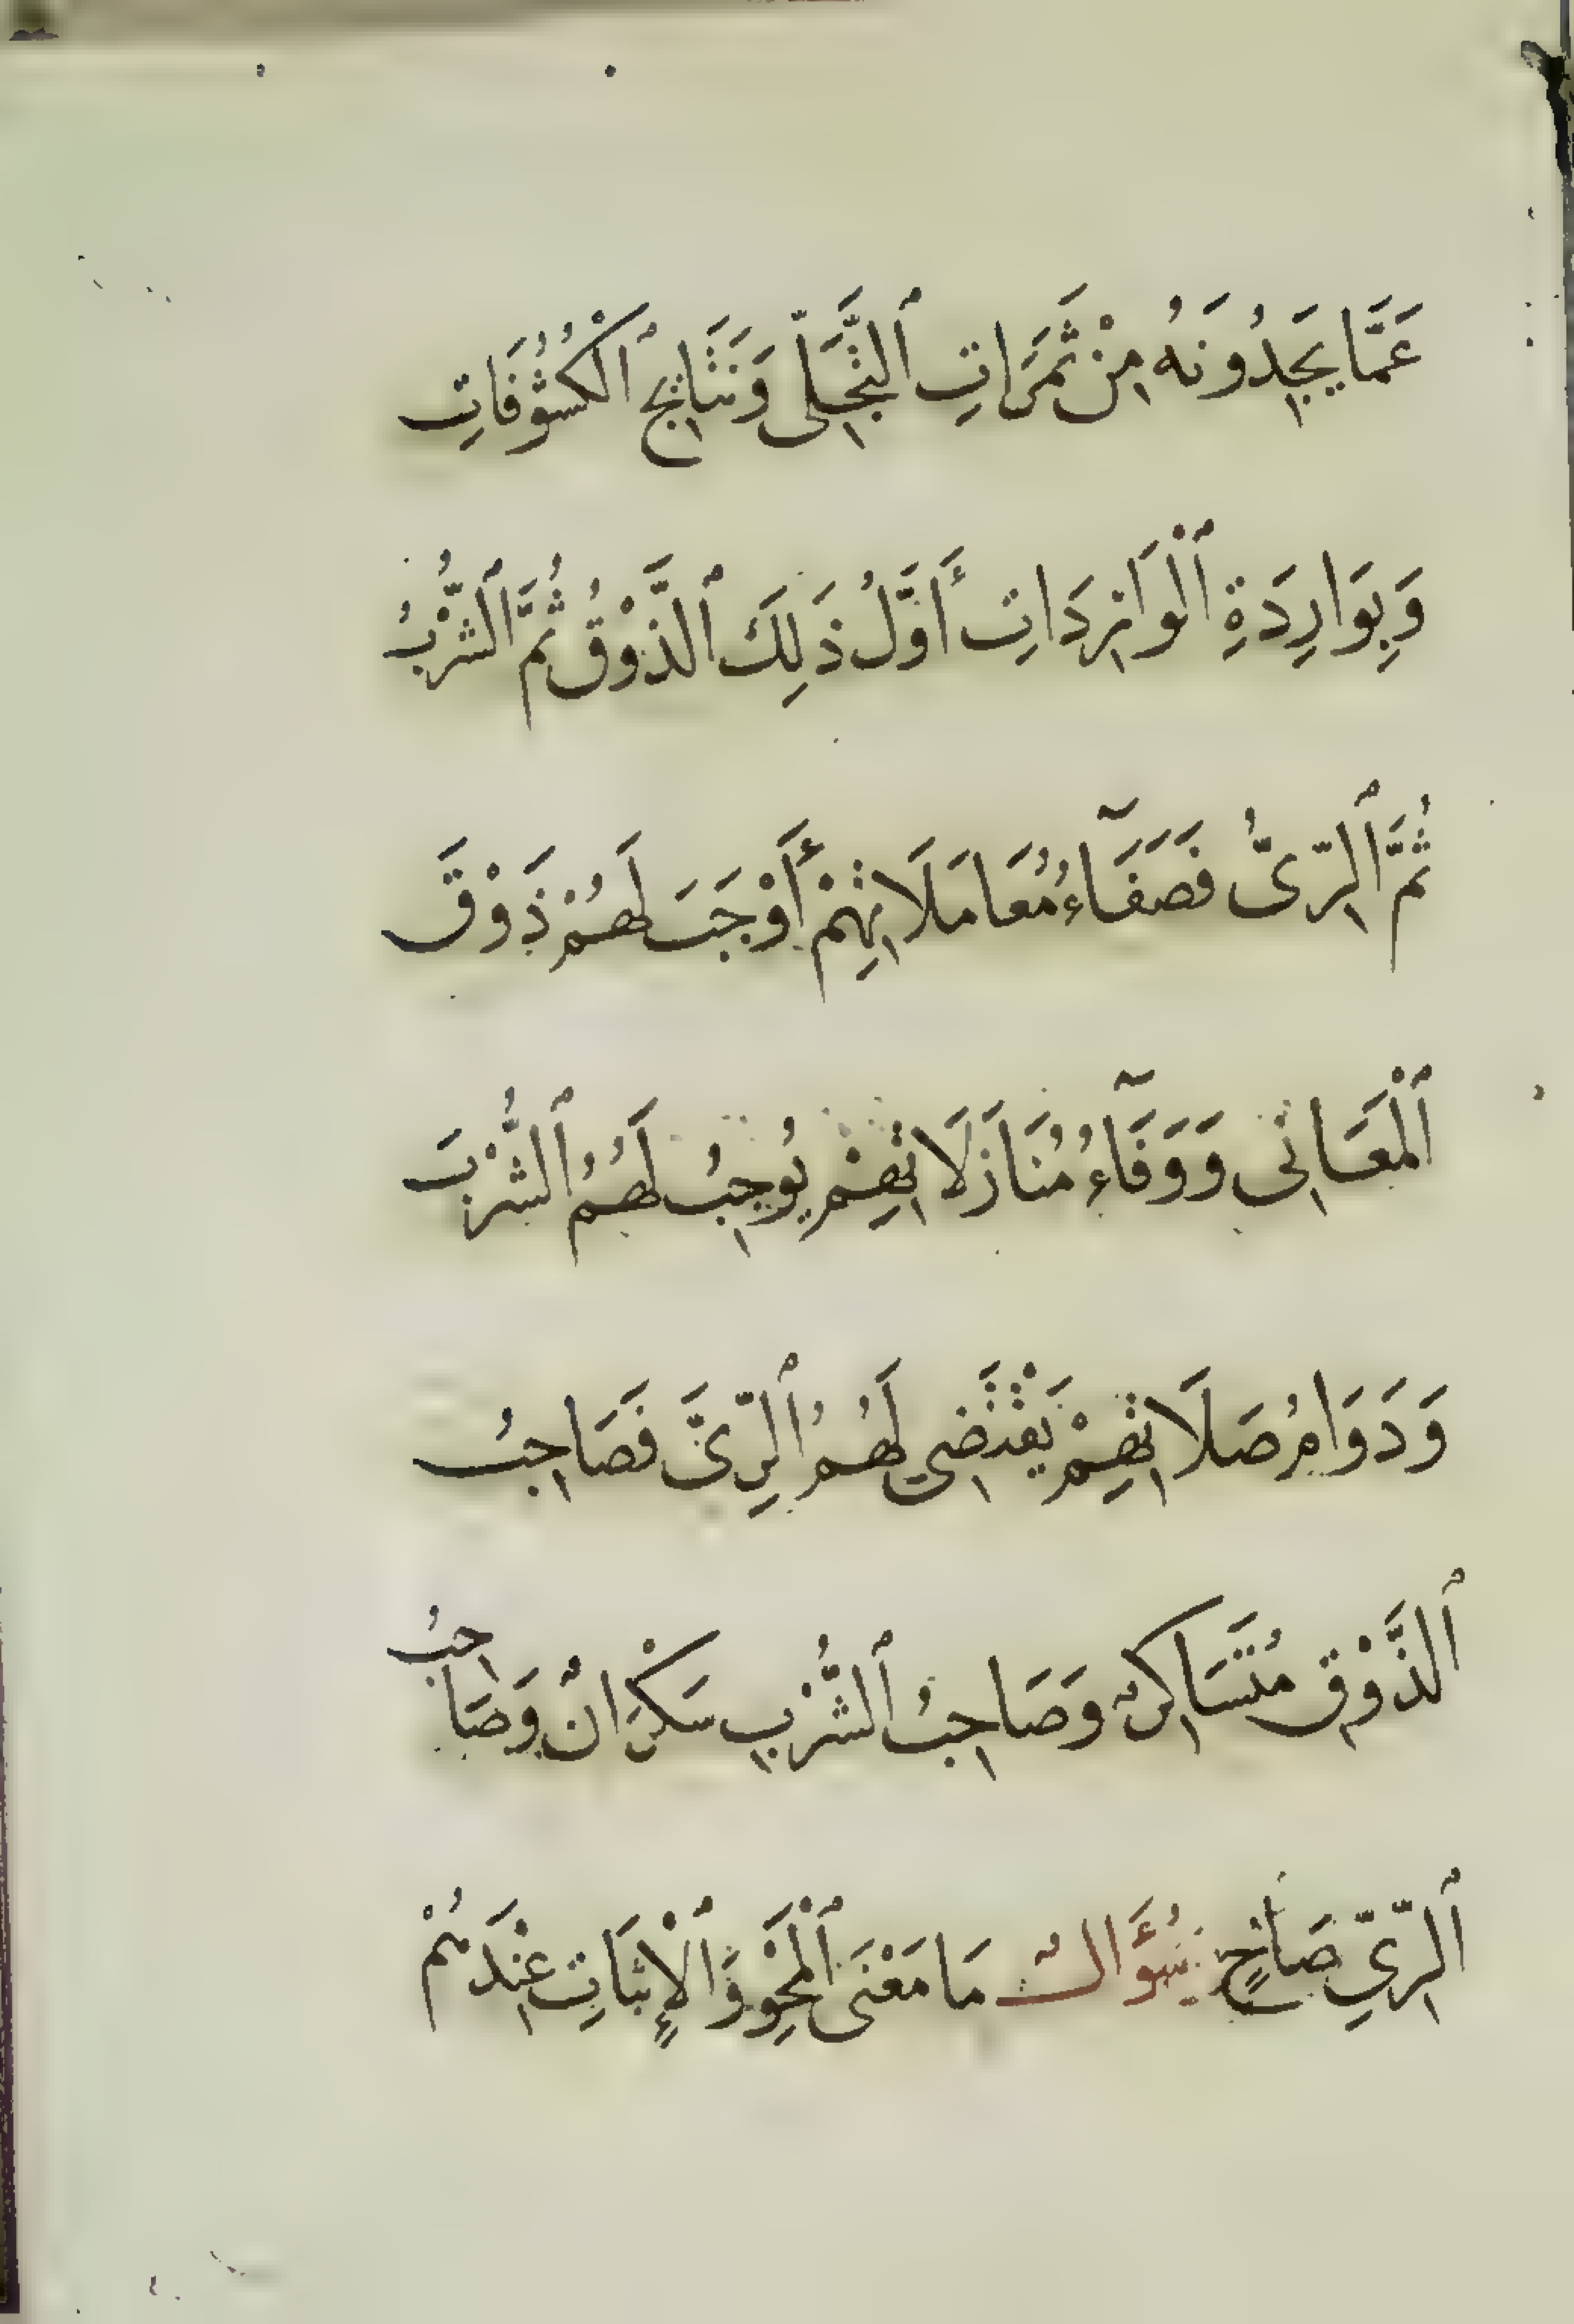 عَمَّا يَجِدُونَهُ مِنْ ثَمَرَاتِ ٱلتَّجَلّى وَنَتَايِجِ ٱلْكُشُوفَاتِ
وَبِوَارِدَةِ ٱلْوَارِدَاتِ أَوَّلُ ذَلِكَ ٱلذَّوْقُ ثُمَّ ٱلشُّرْبُ
ثُمَّ ٱلرِّىُّ فَصَفَآءُ مُعَامَلَاتِهِمْ أَوْجَبَ لَهُمْ ذَوْقَ
ٱلْمَعَانِى وَوَفَآءُ مُنَازَلَاتِهِمْ يُوجِبُ لَهُمُ ٱلشُّرْبَ
وَدَوَامُ صَلَاتِهِمْ يَقْتَضِى لَهُمُ ٱلرِّىَّ فَصَاحِبُ
ٱلذَّوْقِ مُتَسَاكِرٌ وَصَاحِبُ ٱلشُّرْبِ سَكْرَانٌ وَصَاحِبُ
ٱلرِّىِّ صَاحٍ سُؤَالٌ مَا مَعْنَى ٱلْمَحْوِ وَٱلْإِثْبَاتِ عِنْدَهُمْ